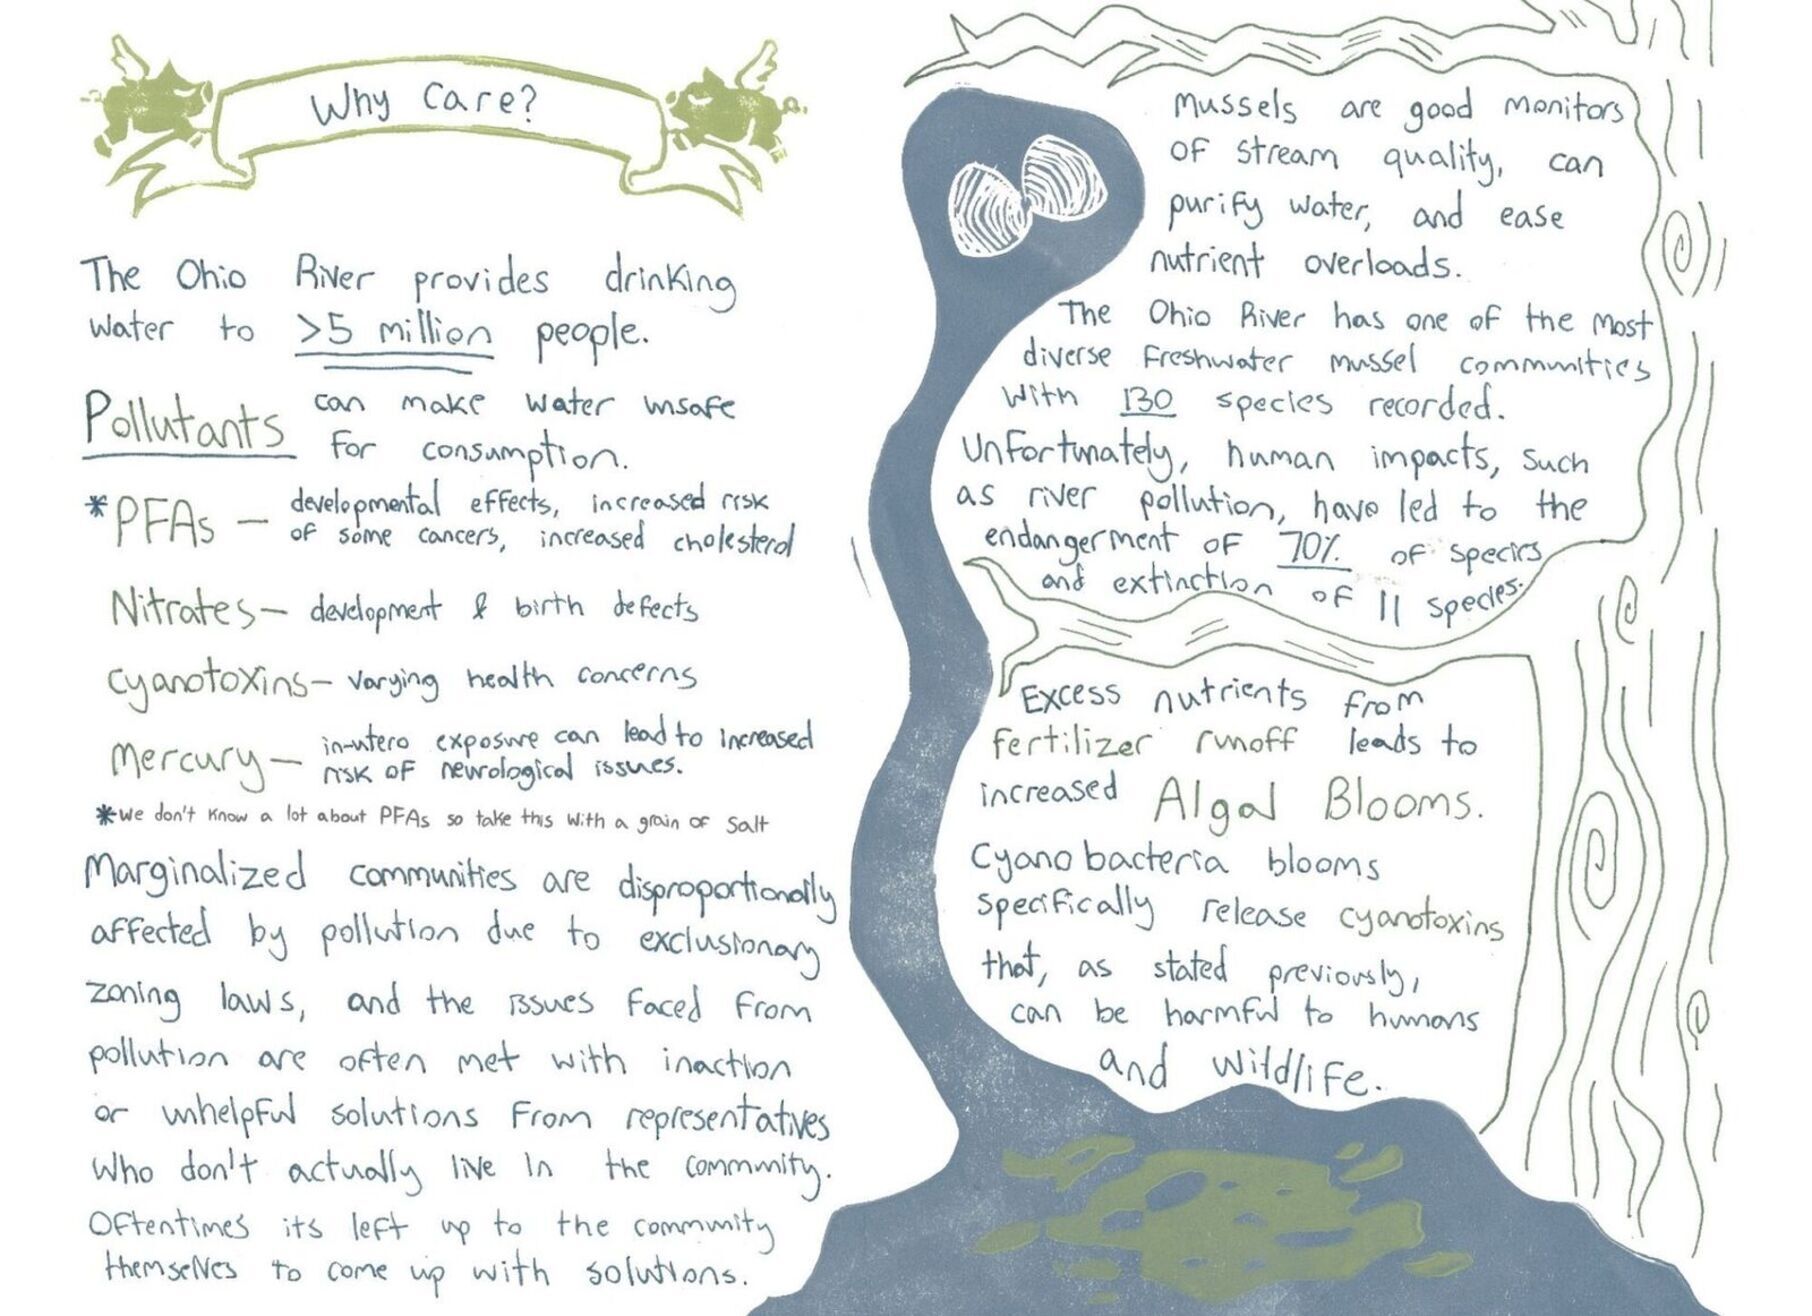 Why Care?
The Ohio River provides drinking
water to >5 million people.
Pollutants can make water unsafe
for consumption.
*PFAs — developmental effects, increased risk
of some cancers, increased cholesterol
Nitrates — development & birth defects
Cyanotoxins — varying health concerns
Mercury — in-utero exposure can lead to increased
risk of neurological issues.
*We don't know a lot about PFAs so take this with a grain of salt
Marginalized communities are disproportionally
affected by pollution due to exclusionary
zoning laws, and the issues faced from
pollution are often met with inaction
or unhelpful solutions from representatives
who don't actually live in the community.
Oftentimes its left up to the community
themselves to come up with solutions.
Mussels are good monitors
of stream quality, can
purify water, and ease
nutrient overloads.
The Ohio River has one of the most
diverse freshwater mussel communities
with 130 species recorded.
Unfortunately, human impacts, such
as river pollution, have led to the
endangerment of 70% of species
and extinction of 11 species.
Excess nutrients from
fertilizer runoff leads to
increased Algal Blooms.
Cyanobacteria blooms
specifically release cyanotoxins
that, as stated previously,
can be harmful to humans
and wildlife.